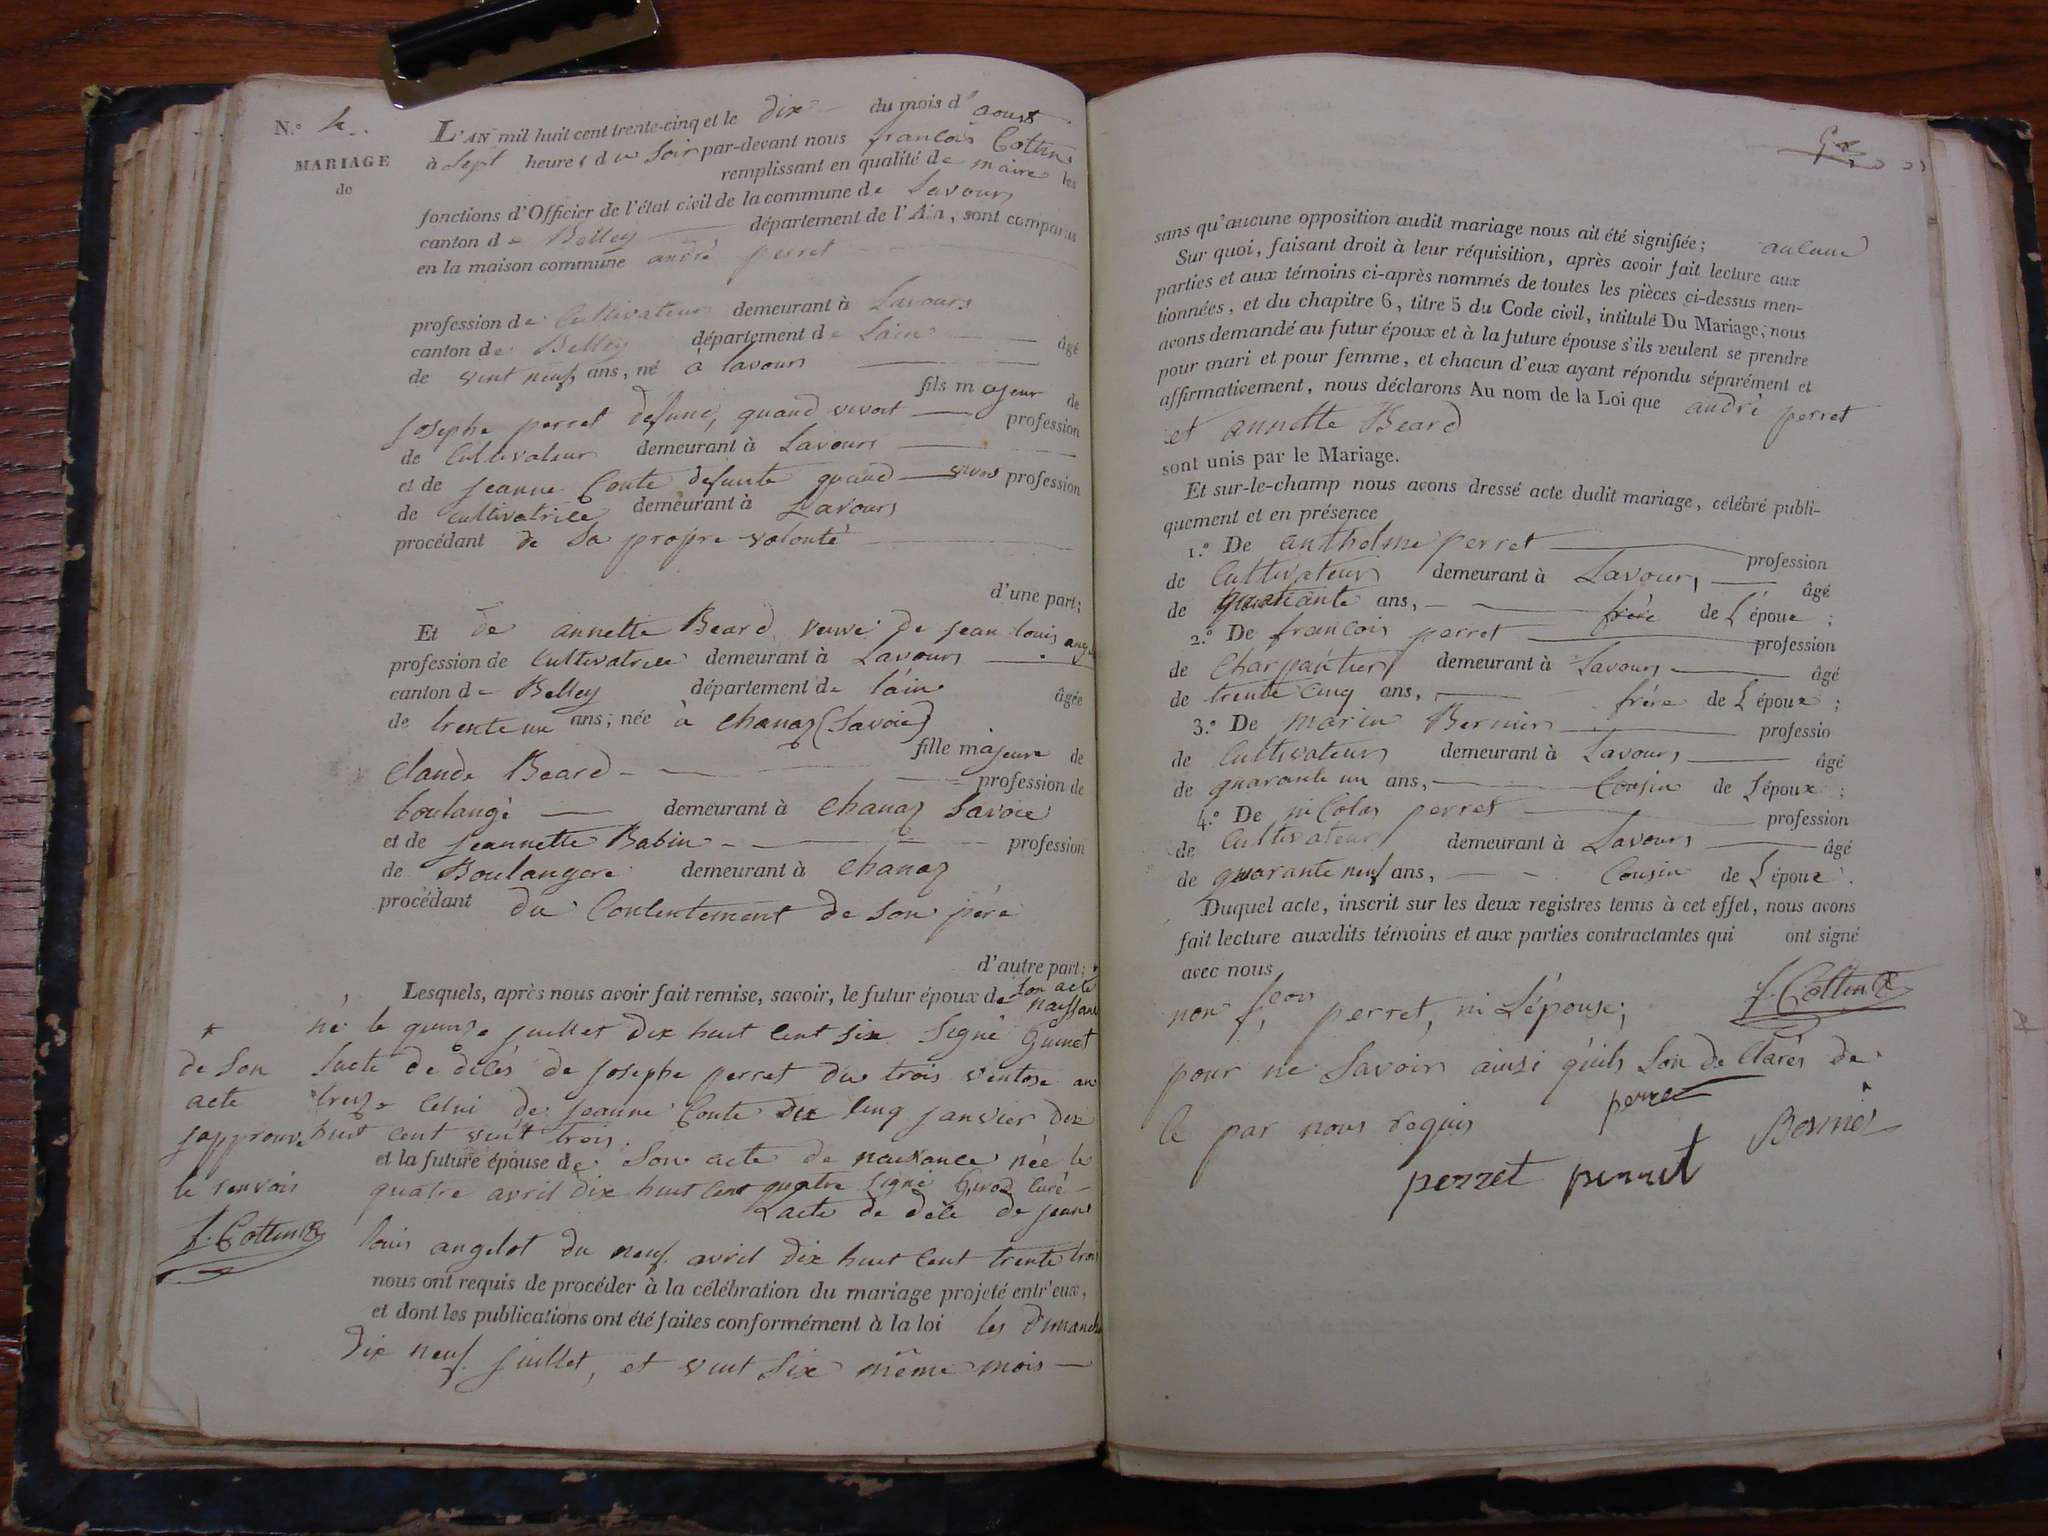 N.° 4.
MARIAGE
de
L'AN mil huit cent trente-cinq et le dix du mois d'aoust
à sept heures du soir par-devant nous françois Cottin
remplissant en qualité de maire les
fonctions d'Officier de l'état civil de la commune de Lavours
canton de Belley département de l'Ain, sont comparus
en la maison commune andré perret
profession de Cultivateur demeurant à Lavours
canton de Belley département de Lain âgé
de vint neuf ans, né à lavours
fils majeur de
joseph perret défunt, quand vivoit profession
de Cultivateur demeurant à Lavours
et de jeanne Conte defunte quand vivoi profession
de cultivatrice demeurant à Lavours
procédant de sa propre volonté
d'une part;
Et de annette Beard veuve de jean louis ang
profession de Cultivatrice demeurant à Lavours
canton de Belley département de lain âgée
de trente un ans, née à Chanaz (Savoie)
fille majeure de
Claude Beard profession de
boulangé demeurant à Chanaz Savoie
et de jeannette Babin profession
de Boulangere demeurant à Chanaz
procédant du Contentement de son père
d'autre part;
Lesquels, après nous avoir fait remise, savoir, le futur époux de son acte
naissance
né le quinze juillet dix huit cent six signé Guinet
lacte de déles de josephe perret du trois ventose an
treize Celui de jeanne Conte dix Cinq janvier dix
huit cent vint trois.
et la future épouse de son acte de naissance née le
quatre avril dix huit cent quatre signé Curé
Lacte de déle de jean
louis angelot du neuf avril dix huit cent trente trois
nous ont requis de procéder à la célébration du mariage projeté entr'eux,
et dont les publications ont été faites conformément à la loi les dimanche
dix neuf juillet, et vint six même mois
*
de son
acte
japprouve
le renvois
f. Cottin
sans qu'aucune opposition audit mariage nous ait été signifiée; aucune
Sur quoi, faisant droit à leur réquisition, après avoir fait lecture aux
parties et aux témoins ci-après nommés de toutes les pièces ci-dessus men-
tionnées, et du chapitre 6, titre 5 du Code civil, intitulé Du Mariage; nous
avons demandé au futur époux et à la future épouse s'ils veulent se prendre
pour mari et pour femme, et chacun d'eux ayant répondu séparément et
affirmativement, nous déclarons Au nom de la Loi que andré perret
et annette Beard
sont unis par le Mariage.
Et sur-le-champ nous avons dressé acte dudit mariage, célébré publi-
quement et en présence
1.° De anthelme perret profession
de Cultivateur demeurant à Lavours, âgé
de quarante ans, frère de L'époux;
2.° De françois perret profession
de Charpantier demeurant à Lavours âgé
de trente cinq ans, frère de L'époux;
3.° De marin Bernier professio
de Cultivateur demeurant à Lavours âgé
de quarante un ans, Cousin de L'époux;
4.° De nicolas perret profession
de Cultivateur demeurant à Lavours âgé
de quarante neuf ans, Cousin de L'époux.
Duquel acte, inscrit sur les deux registres tenus à cet effet, nous avons
fait lecture auxdits témoins et aux parties contractantes qui ont signé
avec nous
non perret, ni L'épouse; f. Cottin
pour ne Savoir ainsi quils Son de Clarés de
le par nous requis perret Bernier
perret perret